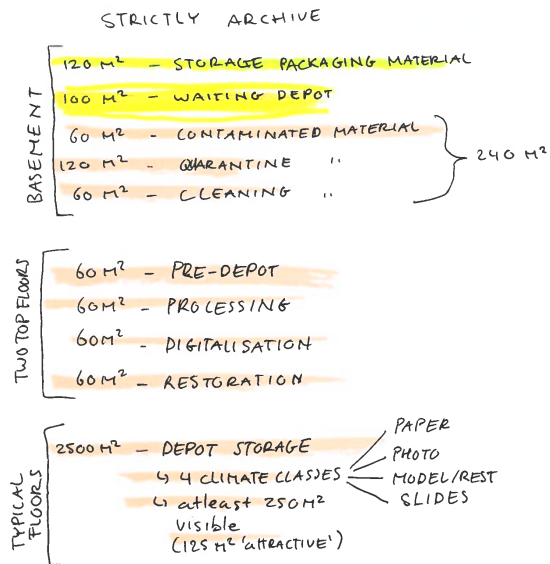 STRICTLY ARCHIVE
BASEMENT
120 M² - STORAGE PACKAGING MATERIAL
100 M² - WAITING DEPOT
60 M² - CONTAMINATED MATERIAL
120 M² - QUARANTINE "
60 M² - CLEANING "
240 M²
TWO TOP FLOORS
60 M² - PRE-DEPOT
60 M² - PROCESSING
60 M² - DIGITALISATION
60 M² - RESTORATION
TYPICAL FLOORS
2500 M² - DEPOT STORAGE
↳ 4 CLIMATE CLASSES
PAPER
PHOTO
MODEL/REST
SLIDES
↳ atleast 250 M²
visible
(125 M² 'attractive')